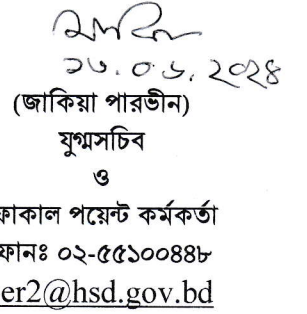 ১৩.০৬.২০২৪
(জাকিয়া পারভীন)
যুগ্মসচিব
ও
ফোকাল পয়েন্ট কর্মকর্তা
ফোনঃ ০২-৫৫১০০৪৪৮
er2@hsd.gov.bd